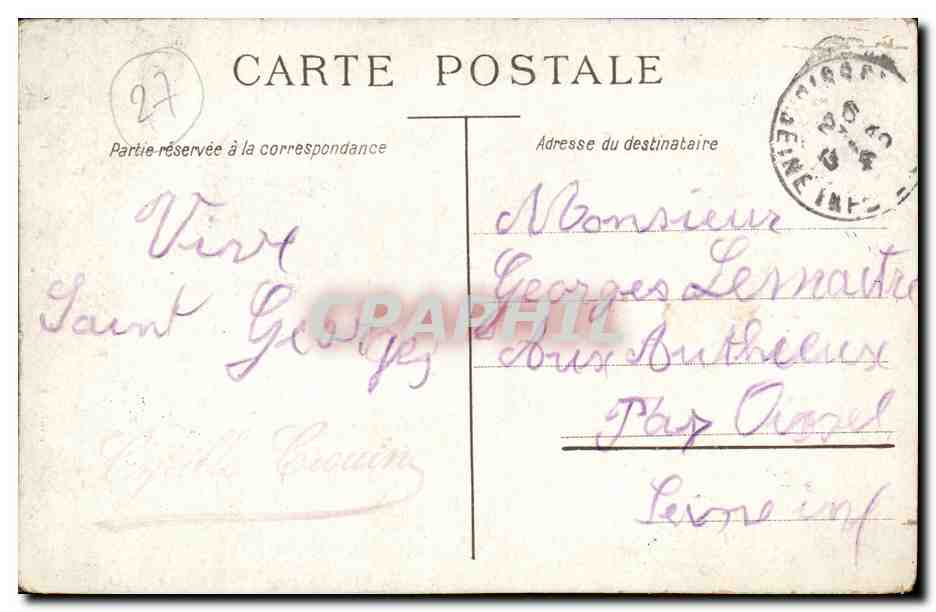 CARTE POSTALE
27
Partie réservée à la correspondance
Adresse du destinataire
Vive
Saint Georges
Monsieur
Georges Lemaitre
Aux Authieux
Par Oissel
Seine inf
SEINE INFRE
CPAPHIL